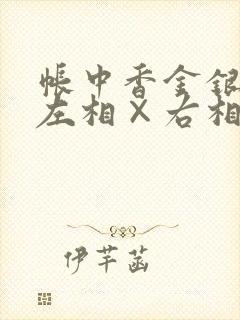 帐中香金银
左相×右相
伊芊菡